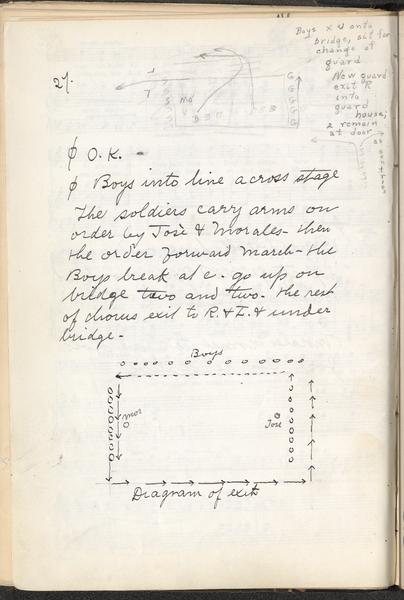 Boys X U onto
bridge, sit for
change of
guard
New guard
exit R
into
guard
house;
2 remain
at door
as sentries
27.
φ O.K. -
φ Boys into line across stage
The soldiers carry arms on
order by José & Morales - then
the order Forward March - the
Boys break at c. go up on
bridge two and two. the rest
of chorus exit to R. & L. & under
bridge -
Boys
Mor
José
Diagram of exit